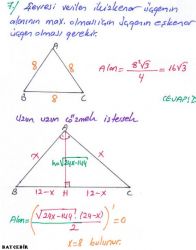 7/ Çevresi verilen ikizkenar üçgenin
alanının max. olması için üçgenin eşkenar
üçgen olması gerekir.
A
8 8
B 8 C
Alan = 8²√3 / 4 = 16√3
CEVAP: D
Uzun uzun çözmek istersek
A
x h=√24x-144 x
B 12-x H 12-x C
Alan = (√24x-144 · (24-2x) / 2)' = 0
x=8 bulunur.